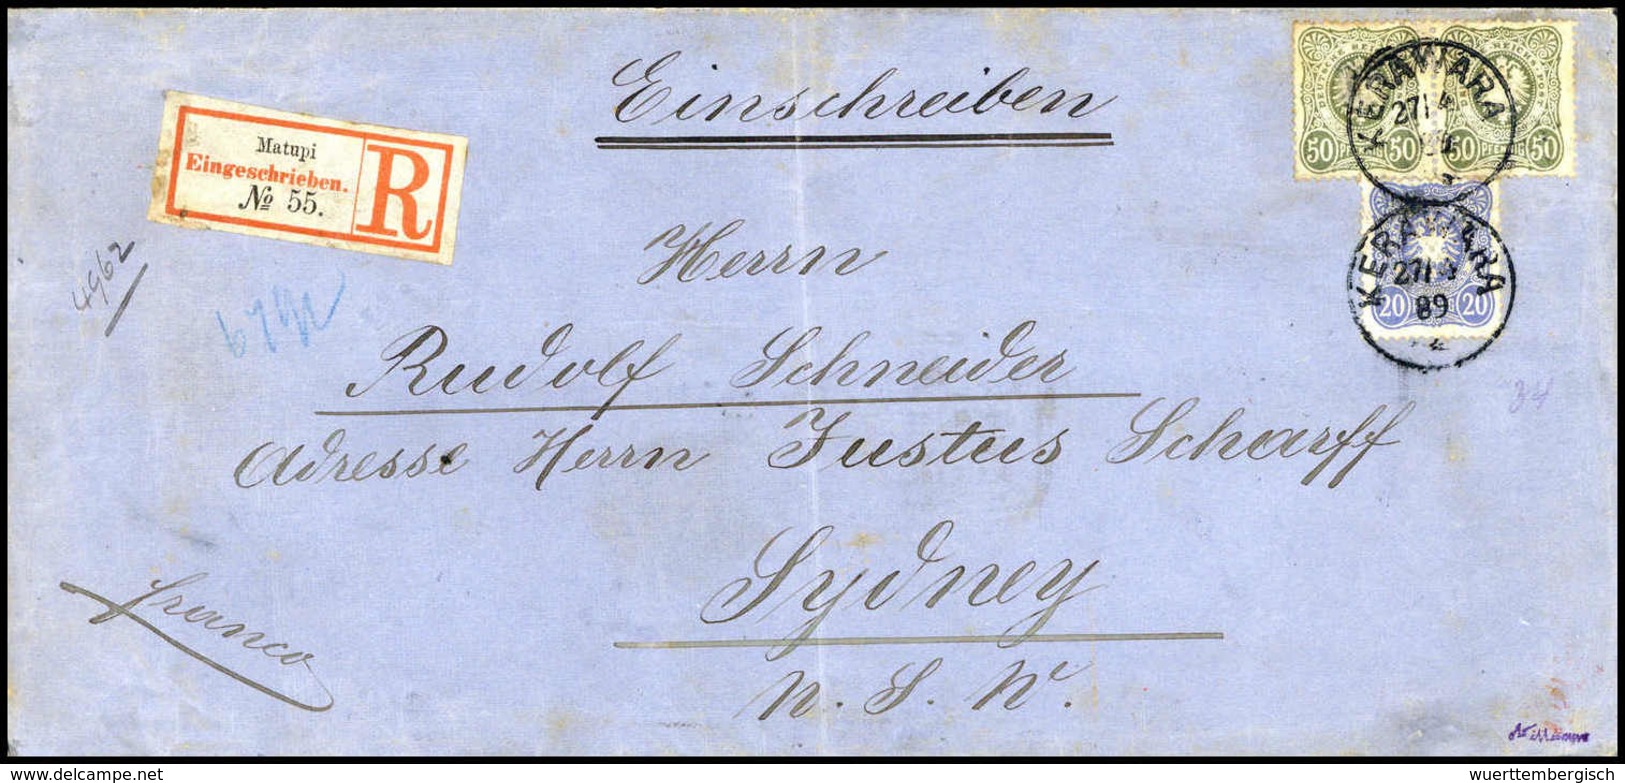 Einschreiben
Matupi
Eingeschrieben.
№ 55.
R
KERAWARA
27/4
50 PFENNIG 50
50 PFENNIG 50
KERAWARA
27/4
89
20 20
4962
Herrn
Rudolf Schneider
Adresse Herrn Justus Scharff
Sydney
N. S. W.
franco
34
delcampe.net
wuerttembergisch